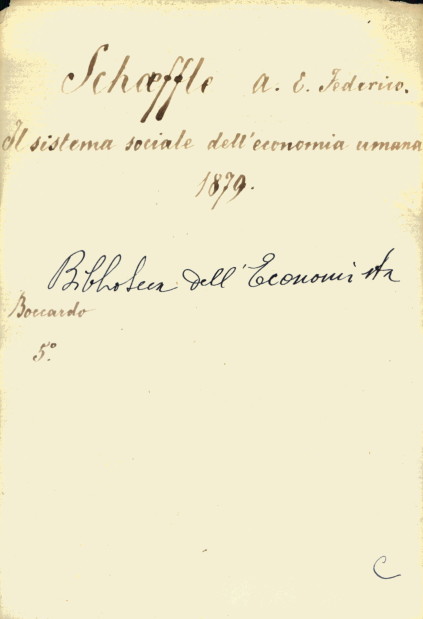 Schæffle A. E. Federico.
Il sistema sociale dell'economia umana
1879.
Biblioteca dell'Economista
Boccardo
5°.
C